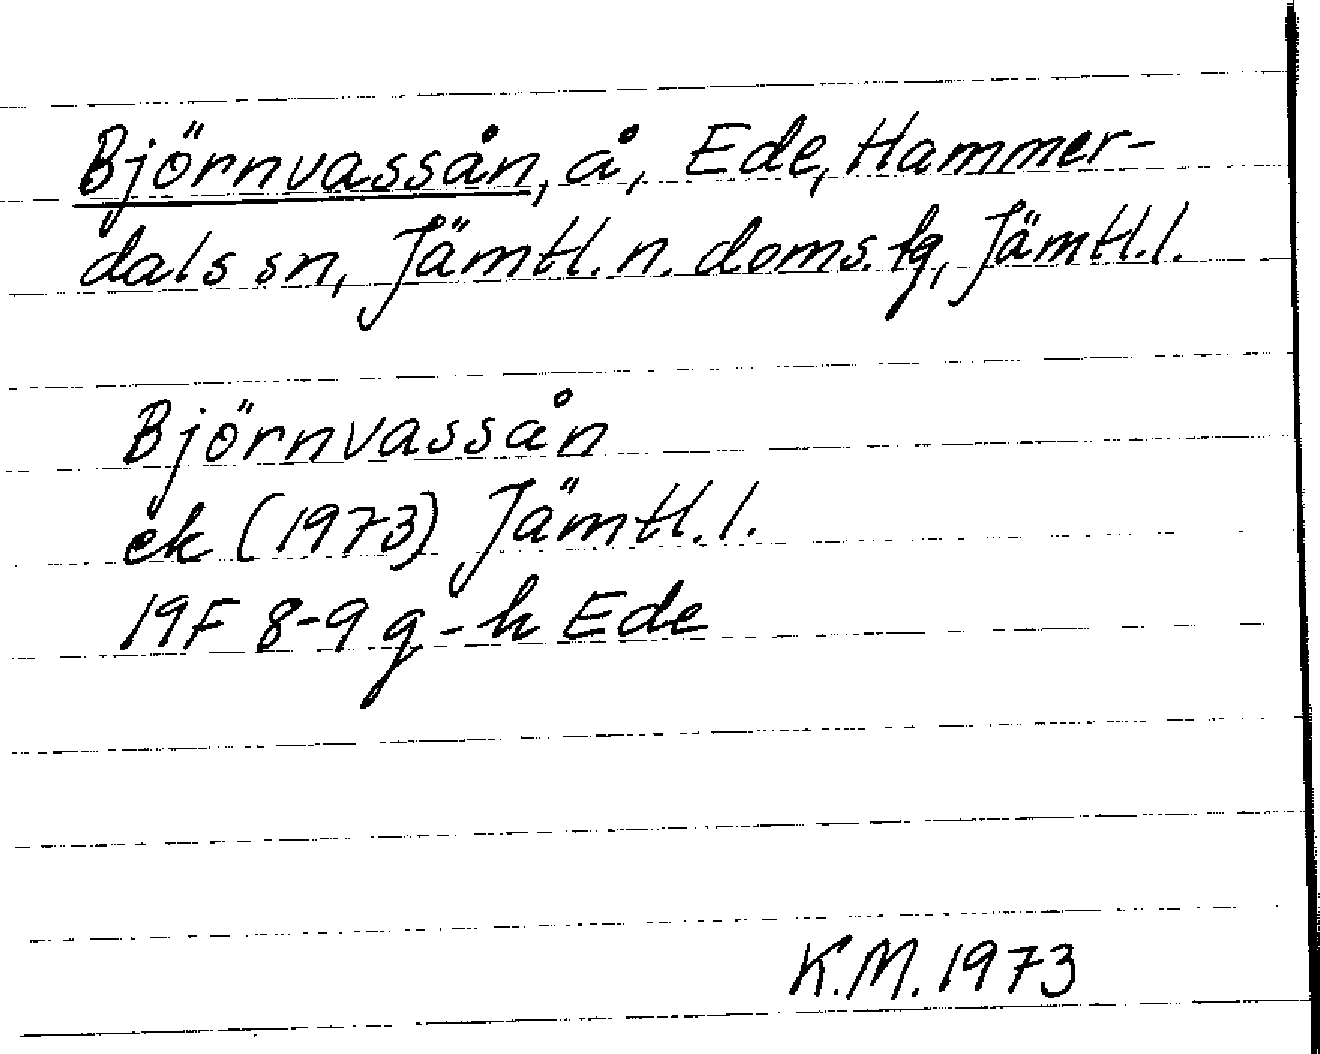 Björnvassån, å, Ede, Hammer-
dals sn, Jämtl. n. doms. fg, Jämtl. l.
Björnvassån
ek (1973) Jämtl. l.
19F 8-9 g-h Ede
K.M. 1973